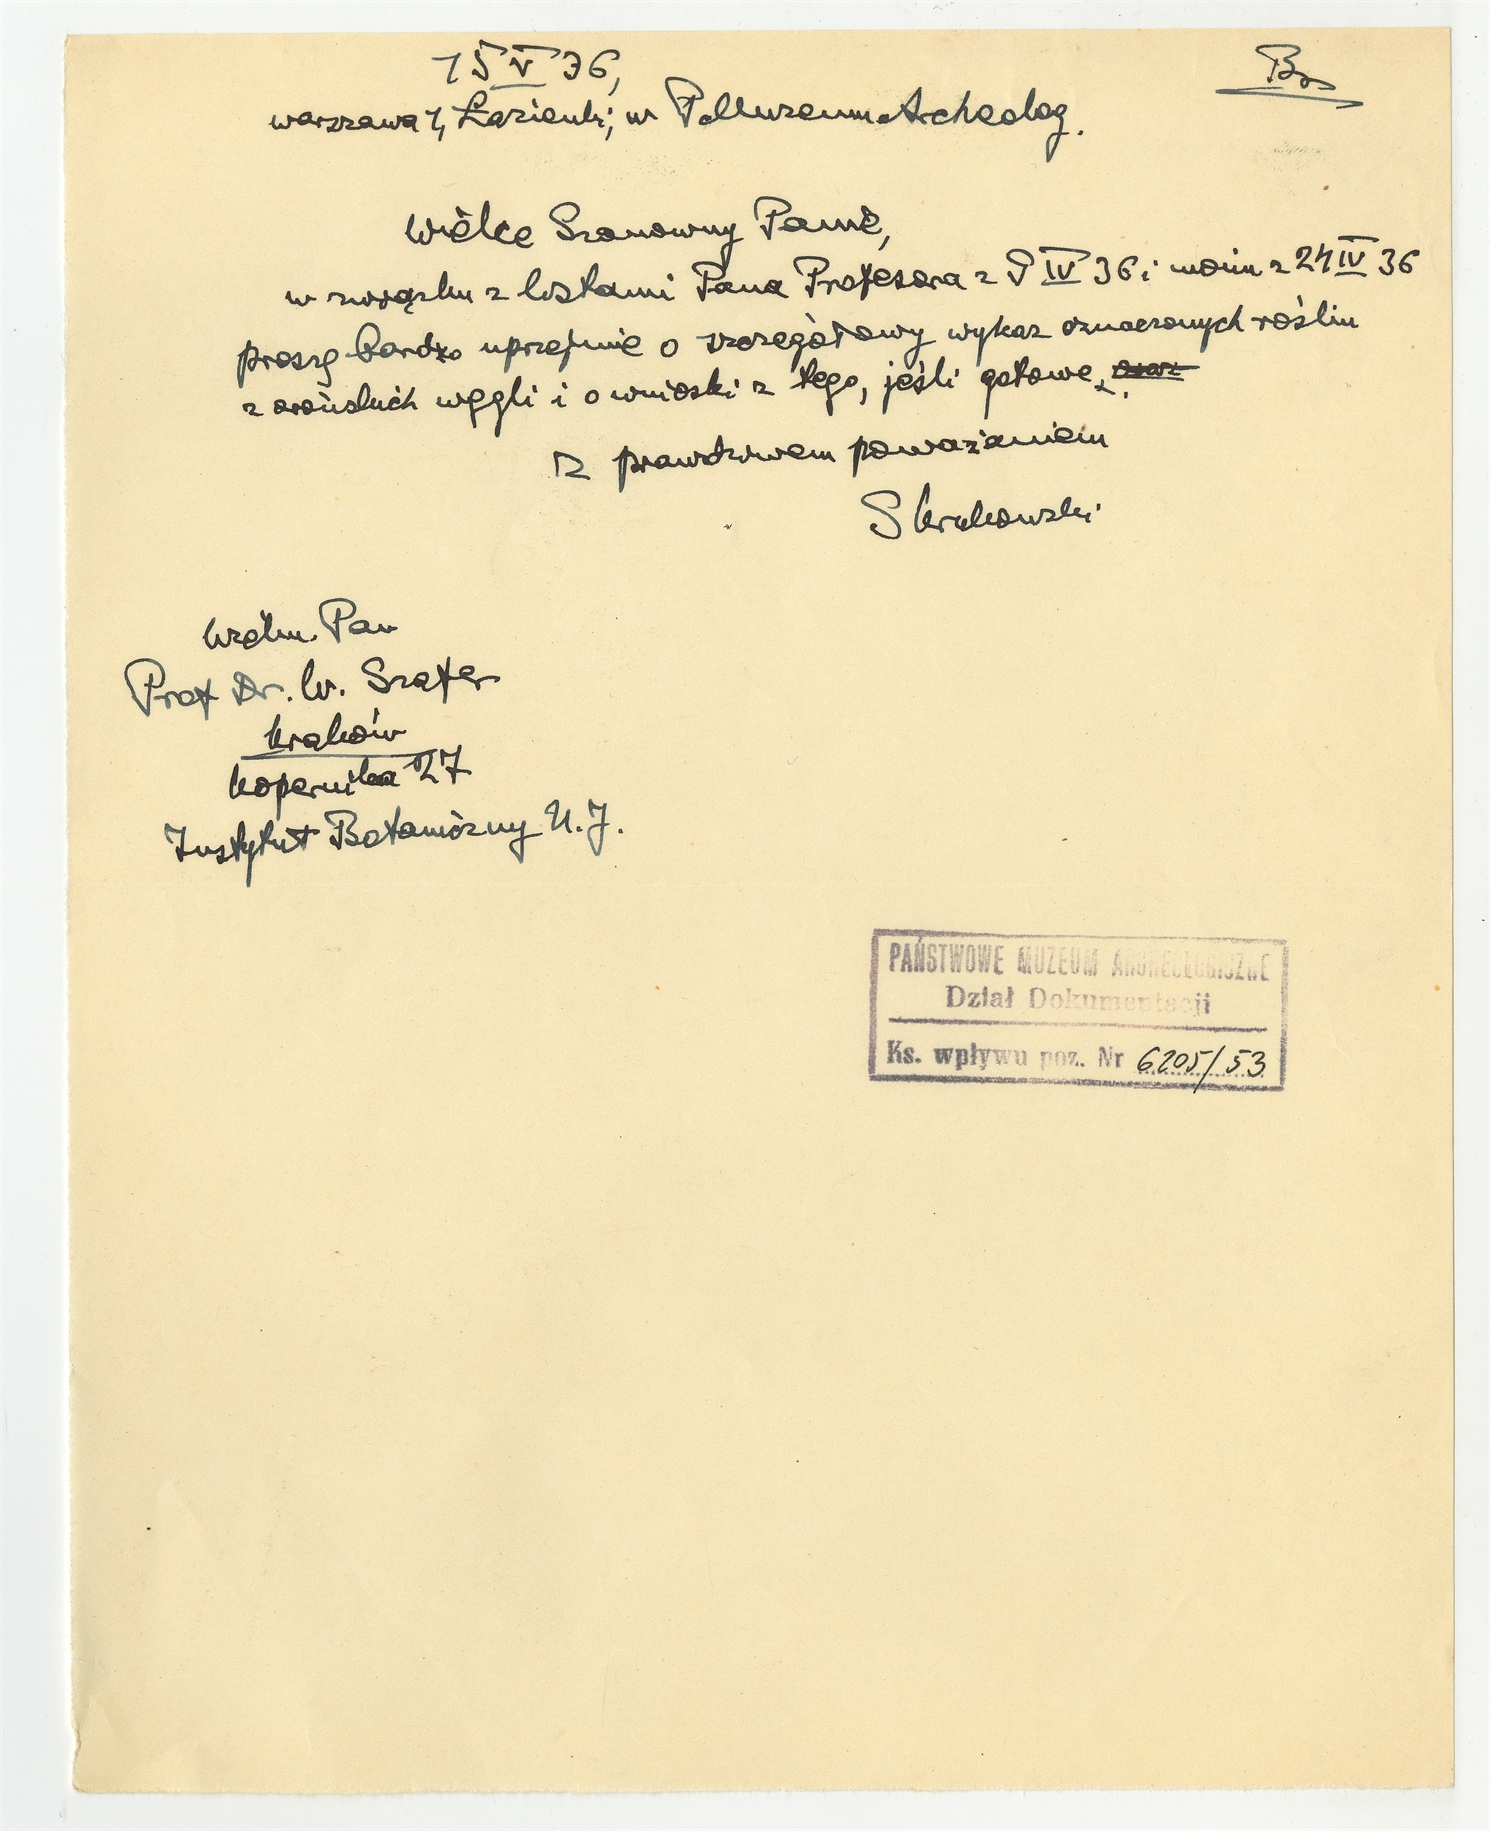 15 V 36,
B
Warszawa 1, Łazienki, w P. Muzeum Archeolog.
Wielce Szanowny Panie,
w związku z listami Pana Profesora z 9 IV 36 i moim z 24 IV 36
proszę bardzo uprzejmie o szczegółowy wykaz oznaczonych roślin
z orońskich węgli i o wnioski z tego, jeśli gotowe.
Z prawdziwem poważaniem
S Krukowski
Wielm. Pan
Prof Dr. W. Szafer
Kraków
Kopernika 27
Instytut Botaniczny U. J.
PAŃSTWOWE MUZEUM ARCHEOLOGICZNE
Dział Dokumentacji
Ks. wpływu poz. Nr 6205/53